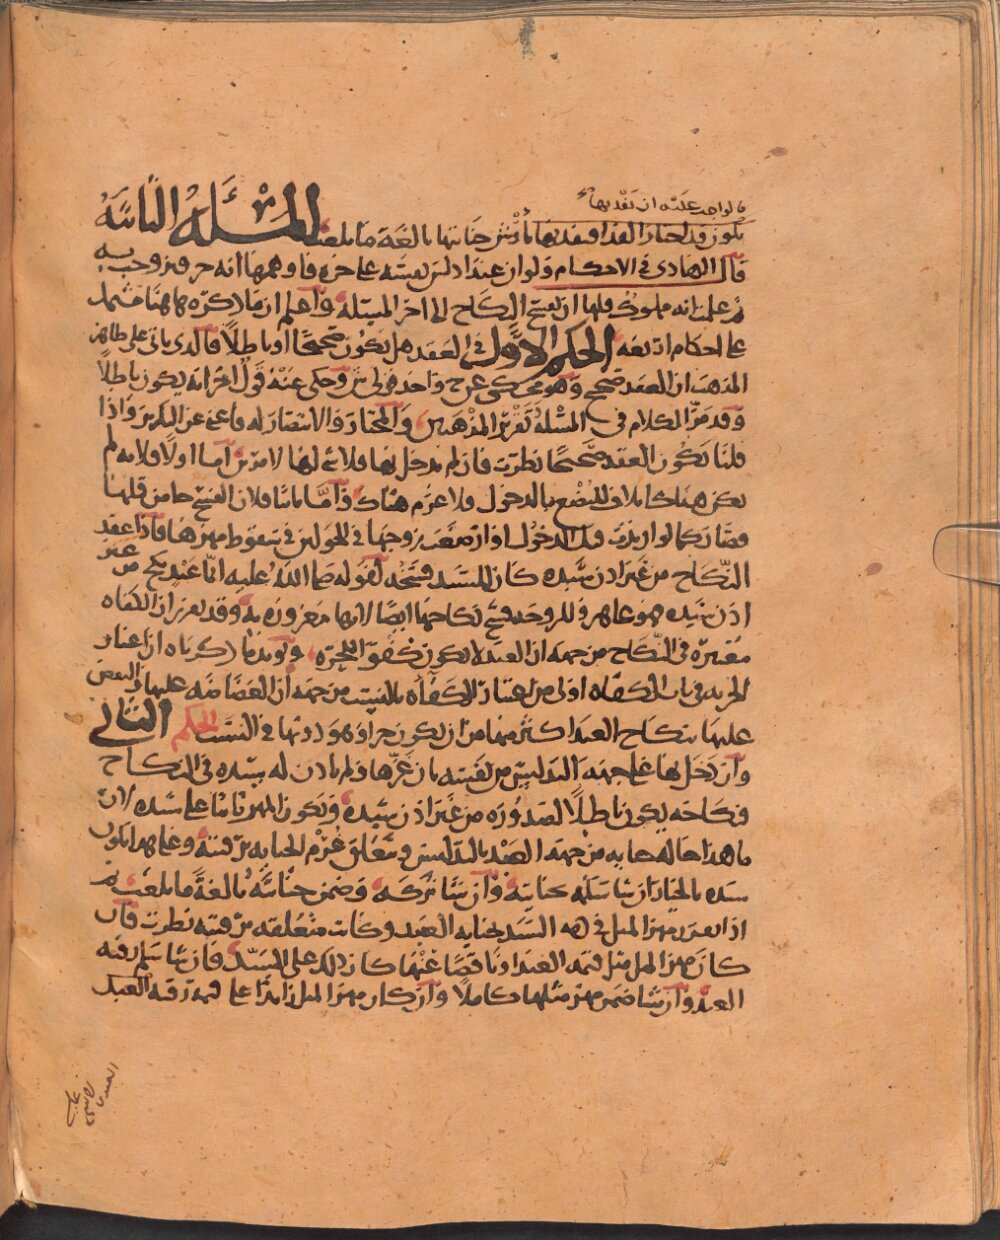 فالواجب عليه ان يفديها
يكون قد اختار الفدا فيفديها بأرش جنايتها بالغة ما بلغت المسئلة الثانية
قال الهادي في الاحكام ولو ان عبدا دلس نفسه على حرة فاوهمها انه حر فتزوجت به
ثم علمت انه مملوك فلها ان تفسخ النكاح الى اخر المسئلة واعلم ان ما ذكره هاهنا مشتمل
على احكام اربعة الحكم الاول في العقد هل يكون صحيحا او باطلا فالذي ياتي على ظاهر
المذهب ان العقد صحيح وهو محكي عن ح واحد قولي ش وحكي عنه قول اخر انه يكون باطلا
وقد مر الكلام في المسئلة تقرير المذهبين والمختار والانتصار له فاغنى عن التكرير واذا
قلنا بكون العقد صحيحا نظرت فان لم يدخل بها فلا شي لها لامرين اما اولا فلانه لم
يكن هناك للبضع بالدخول فلا غرم هناك واما ثانيا فلان الفسخ جا من قبلها
فصار كما لو ارتدت قبل الدخول او ارضعت زوجها في الحولين في سقوط مهرها فاذا عقد
النكاح من غير اذن سيده كان للسيد فسخه لقوله صلى الله عليه ايما عبد نكح من غير
اذن سيده فهو عاهر وللزوجة فسخ نكاحها ايضا لانها مغرورة به وقد تقرر ان الكفاه
معتبرة في النكاح من جهة ان العبد لا يكون كفوا للحرة ويويد ما ذكرناه ان اعتبار
الحرية في باب الكفاه اولى من اعتبار الكفاه بالنسب من جهة ان الغضاضة عليها والنقص
عليها بنكاح العبد اكثر منها من ان يكون حرا وهو دونها في النسب الحكم الثاني
وان دخل بها على جهة التدليس من نفسه بان غرها ولم ياذن له سيده في النكاح
فنكاحه يكون باطلا لصدوره من غير اذن سيده ويكون المهر ثابتا على سيده لان
ما هذا حاله جنايه من جهة العبد بالتدليس ويتعلق غرم الجنايه برقبته وعلى هذا يكون
سيده بالخيار ان شا سلمه بجنايته وان شا تركه وضمن جنايته بالغة ما بلغت ثم
اذا تقرر مهر المثل في ذمة السيد بجنايه العبد وكانت متعلقه برقبته نظرت فان
كان مهر المثل مثل قيمة العبد او ناقصا عنها كان ذلك على السيد فان شا سلم رقبه
العبد وان شا ضمن مهر مثلها كاملا وان كان مهر المثل زايدا على قيمة رقبه العبد